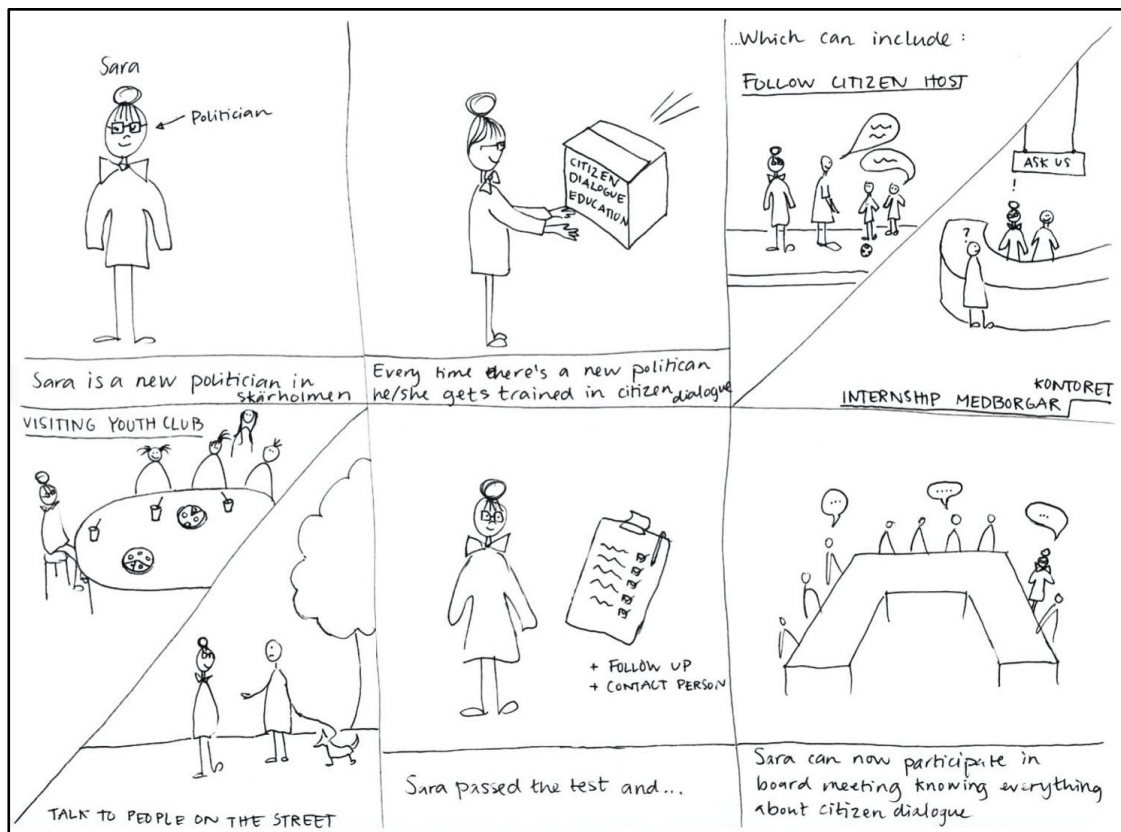 Sara
Politician
Sara is a new politician in
skärholmen
CITIZEN
DIALOGUE
EDUCATION
Every time there's a new politican
he/she gets trained in citizen dialogue
...Which can include:
FOLLOW CITIZEN HOST
ASK US
!
?
INTERNSHIP MEDBORGAR
KONTORET
VISITING YOUTH CLUB
TALK TO PEOPLE ON THE STREET
+ FOLLOW UP
+ CONTACT PERSON
Sara passed the test and...
...
....
...
Sara can now participate in
board meeting knowing everything
about citizen dialogue